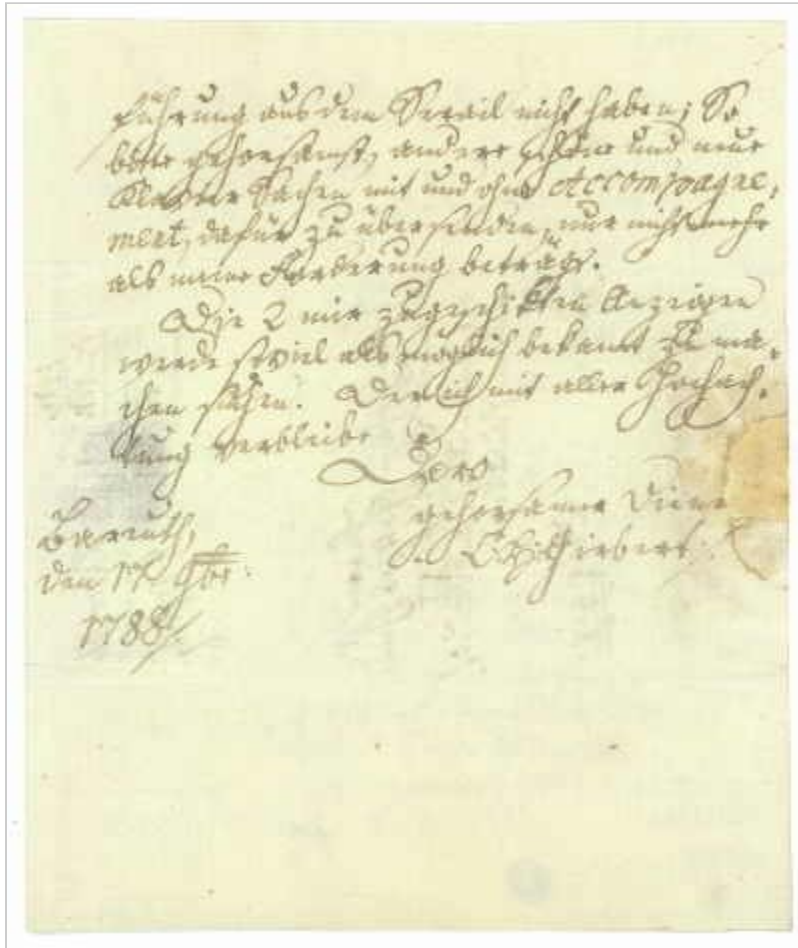 führung aus dem Serail nicht haben; So
bitte gehorsamst, andere schöne und neue
Klavier Sachen mit und ohne Accompagne,
ment, dafür zu übersenden, nur nicht mehr
als meine Forderung beträgt.
Die 2 mir zugeschikten Anzeigen
werde soviel als möglich bekant zu ma,
chen suchen. Der ich mit aller Hochach,
tung verbleibe
Dero
gehorsamer Diener
Giebert
Baruth,
den 17 9br:
1788